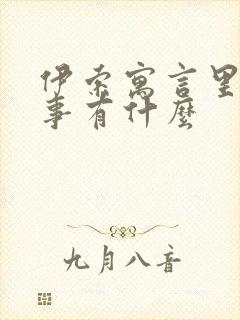 伊索寓言里
事有什麼
九月八音